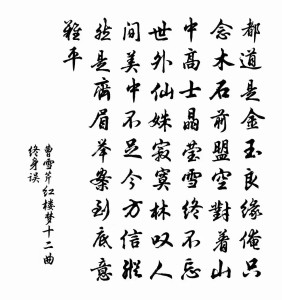 都道是金玉良缘俺只
念木石前盟空對着山
中高士晶莹雪终不忘
世外仙姝寂寞林叹人
间美中不足今方信縱
然是齊眉举案到底意
难平
曹雪芹红楼梦十二曲
终身误